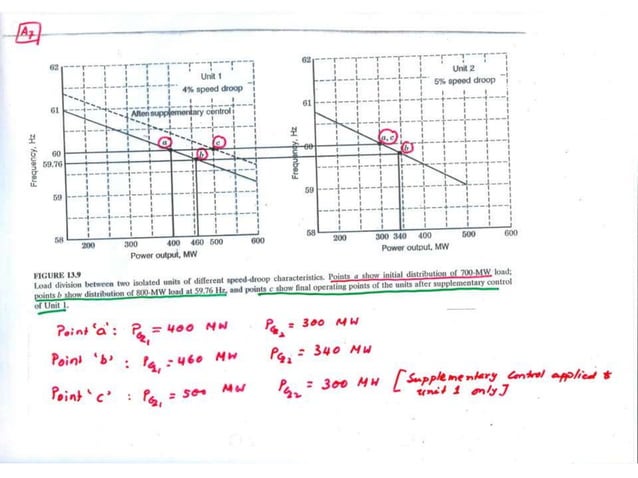 A7
62
61
60
59.76
59
58
Frequency, Hz
Unit 1
4% speed droop
After supplementary control
a
b
c
200 300 400 460 500 600
Power output, MW
62
61
60
59
58
Frequency, Hz
Unit 2
5% speed droop
a,c
b
200 300 340 400 500 600
Power output, MW
FIGURE 13.9
Load division between two isolated units of different speed-droop characteristics. Points a show initial distribution of 700-MW load;
points b show distribution of 800-MW load at 59.76 Hz, and points c show final operating points of the units after supplementary control
of Unit 1.
Point 'a' : PG1 = 400 MW PG2 = 300 MW
Point 'b' : PG1 = 460 MW PG2 = 340 MW
Point 'c' : PG1 = 500 MW PG2 = 300 MW [Supplementary control applied to
unit 1 only]